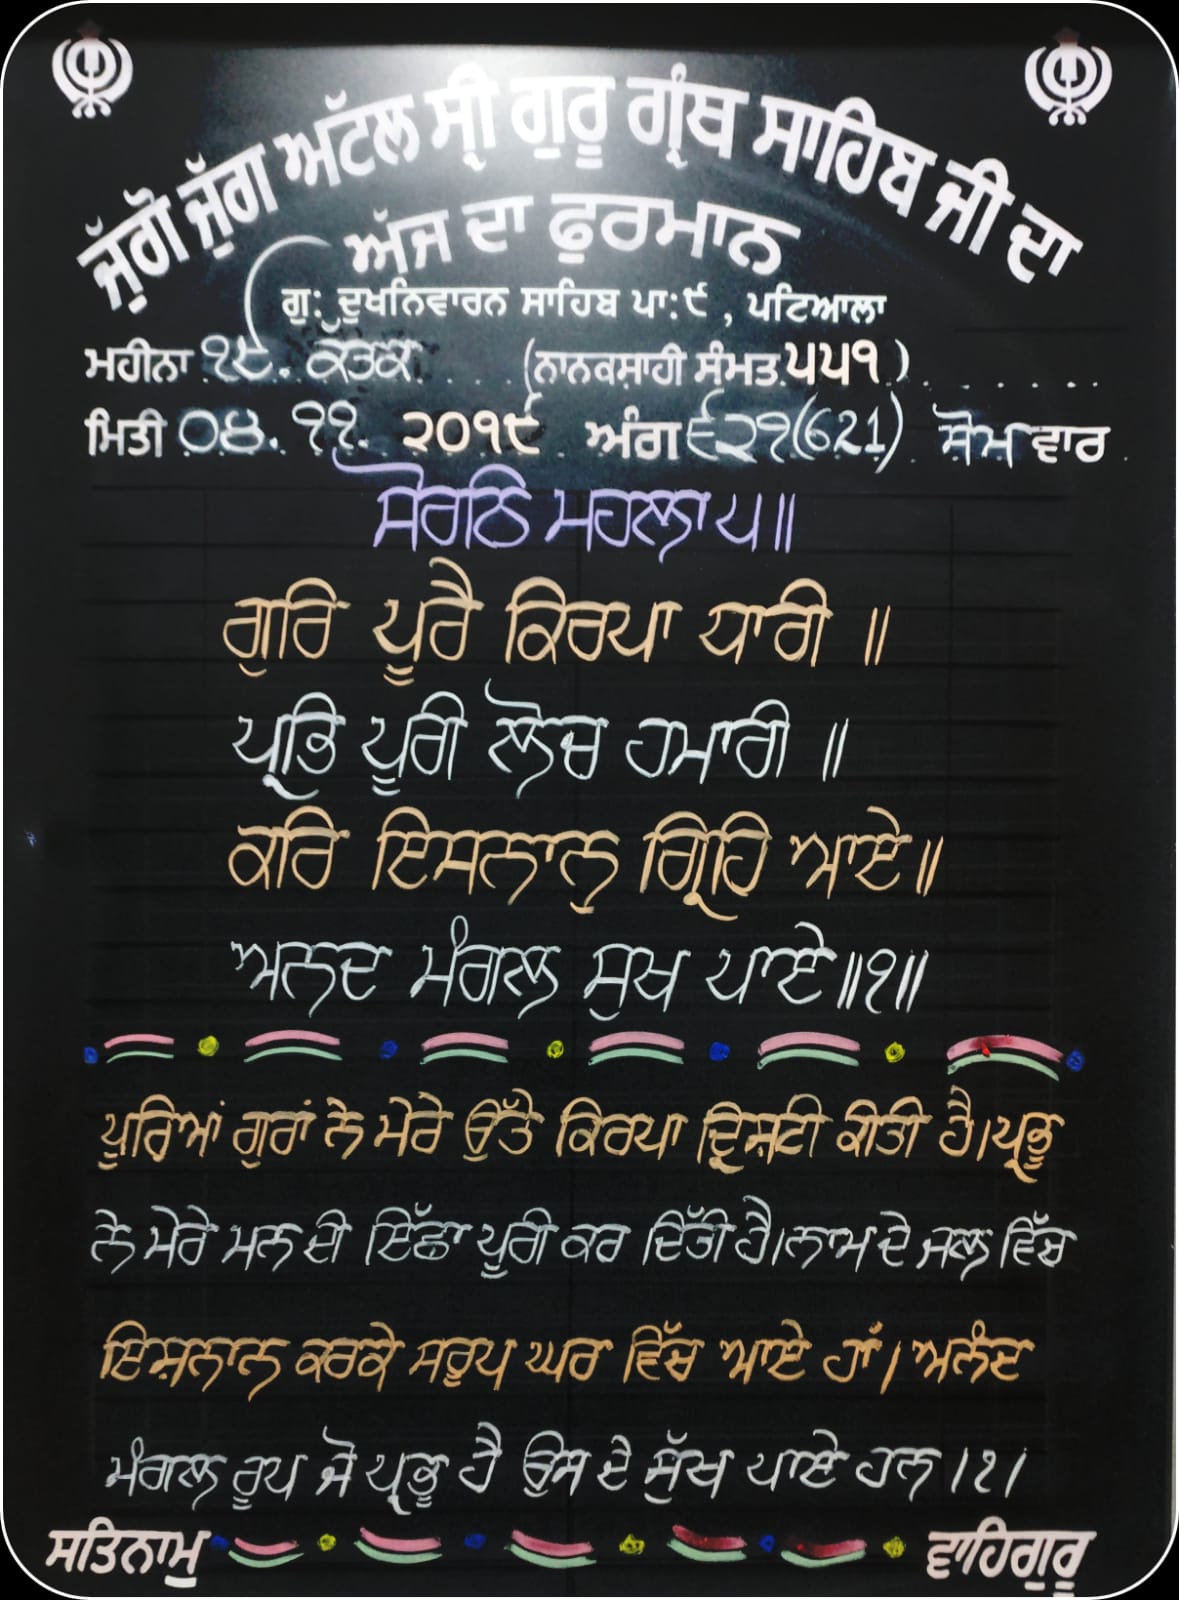 ਜੁੱਗੋ ਜੁੱਗ ਅਟੱਲ ਸ੍ਰੀ ਗੁਰੂ ਗ੍ਰੰਥ ਸਾਹਿਬ ਜੀ ਦਾ
ਅੱਜ ਦਾ ਫੁਰਮਾਨ
ਗੁ: ਦੁਖਨਿਵਾਰਨ ਸਾਹਿਬ ਪਾ:੯ , ਪਟਿਆਲਾ
ਮਹੀਨਾ ੧੯. ਕੱਤਕ (ਨਾਨਕਸ਼ਾਹੀ ਸੰਮਤ ੫੫੧)
ਮਿਤੀ ੦੪. ੧੧. ੨੦੧੯ ਅੰਗ ੬੨੧(621) ਸੋਮਵਾਰ
ਸੋਰਠਿ ਮਹਲਾ ੫॥
ਗੁਰਿ ਪੂਰੈ ਕਿਰਪਾ ਧਾਰੀ ॥
ਪ੍ਰਭਿ ਪੂਰੀ ਲੋਚ ਹਮਾਰੀ ॥
ਕਰਿ ਇਸਨਾਨੁ ਗ੍ਰਿਹਿ ਆਏ॥
ਅਨਦ ਮੰਗਲ ਸੁਖ ਪਾਏ॥੧॥
ਪੂਰਿਆਂ ਗੁਰਾਂ ਨੇ ਮੇਰੇ ਉੱਤੇ ਕਿਰਪਾ ਦ੍ਰਿਸ਼ਟੀ ਕੀਤੀ ਹੈ।ਪ੍ਰਭੂ
ਨੇ ਮੇਰੇ ਮਨ ਦੀ ਇੱਛਾ ਪੂਰੀ ਕਰ ਦਿੱਤੀ ਹੈ।ਨਾਮ ਦੇ ਜਲ ਵਿੱਚ
ਇਸ਼ਨਾਨ ਕਰਕੇ ਸਰੂਪ ਘਰ ਵਿੱਚ ਆਏ ਹਾਂ। ਅਨੰਦ
ਮੰਗਲ ਰੂਪ ਜੋ ਪ੍ਰਭੂ ਹੈ ਉਸ ਦੇ ਸੁੱਖ ਪਾਏ ਹਨ।੧।
ਸਤਿਨਾਮੁ ਵਾਹਿਗੁਰੂ